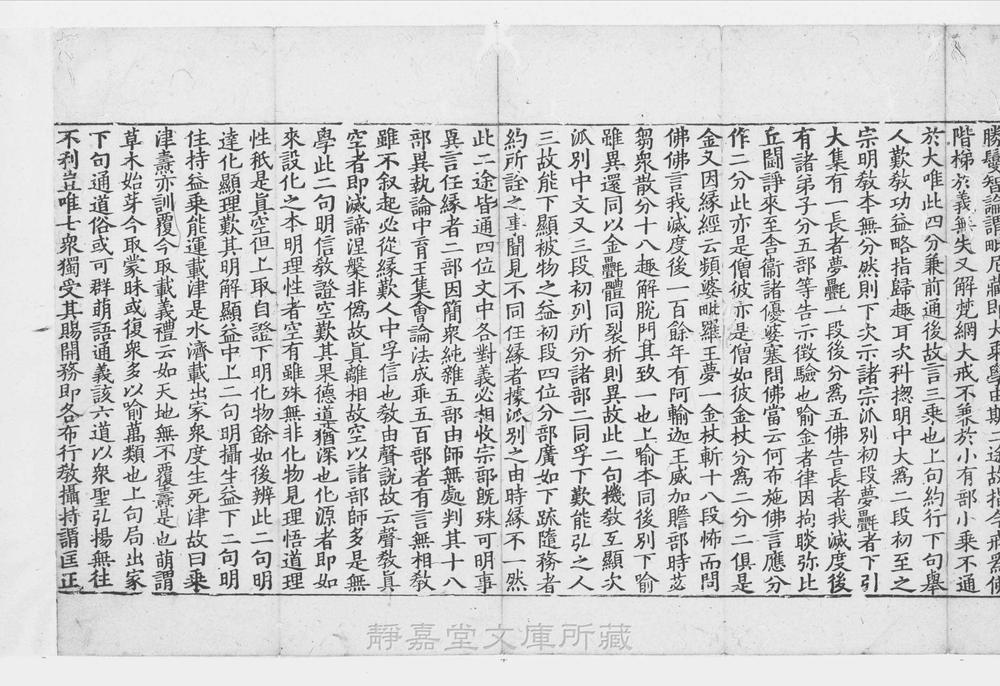 勝鬘智論謂毗尼藏即大乘學由斯二途故指今戒爲佛
階梯於義無失又解梵網大戒不兼於小有部小乘不通
於大唯此四分兼前通後故言三乘也上句約行下句舉
人歎敎功益略指歸趣耳次科揔明中大爲二段初至之
宗明敎本無分然則下次示諸宗派別初段夢㲲者下引
大集有一長者夢㲲一段後分爲五佛告長者我滅度後
有諸弟子分五部等告示徵驗也喻金者律因拘睒弥比
丘鬪諍來至舍衞諸優婆塞問佛當云何布施佛言應分
作二分此亦是僧彼亦是僧如彼金杖分爲二分二俱是
金又因緣經云頻婆毗羅王夢一金杖斬十八段怖而問
佛佛言我滅度後一百餘年有阿輸迦王威加贍部時苾
芻衆散分十八趣解脫門其致一也上喻本同後別下喻
雖異還同以金㲲體同裂析則異故此二句機敎互顯次
派別中文又三段初列所分諸部二同孚下歎能弘之人
三故能下顯被物之益初段四位分部廣如下疏隨務者
約所詮之事聞見不同任緣者據派別之由時緣不一然
此二途皆通四位文中各對義必相收宗部旣殊可明事
異言任緣者二部因簡衆純雜五部由師無處判其十八
部異執論中育王集會論法成乖五百部者有言無相敎
雖不叙起必從緣歎人中孚信也敎由聲說故云聲敎真
空者即滅諦涅槃非僞故真離相故空以諸部師多是無
學此二句明信敎證空歎其果德道猶深也化源者即如
來設化之本明理性者空有雖殊無非化物見理悟道理
性秖是真空但上取自證下明化物餘如後辨此二句明
達化顯理歎其明解顯益中上二句明攝生益下二句明
住持益乘能運載津是水濟載出家衆度生死津故曰乘
津燾亦訓覆今取載義禮云如天地無不覆燾是也萌謂
草木始芽今取蒙昧或復衆多以喻萬類也上句局出家
下句通道俗或可群萌語通義該六道以衆聖弘揚無往
不利豈唯七衆獨受其賜開務即各布行敎攝持謂匡正
靜嘉堂文庫所藏